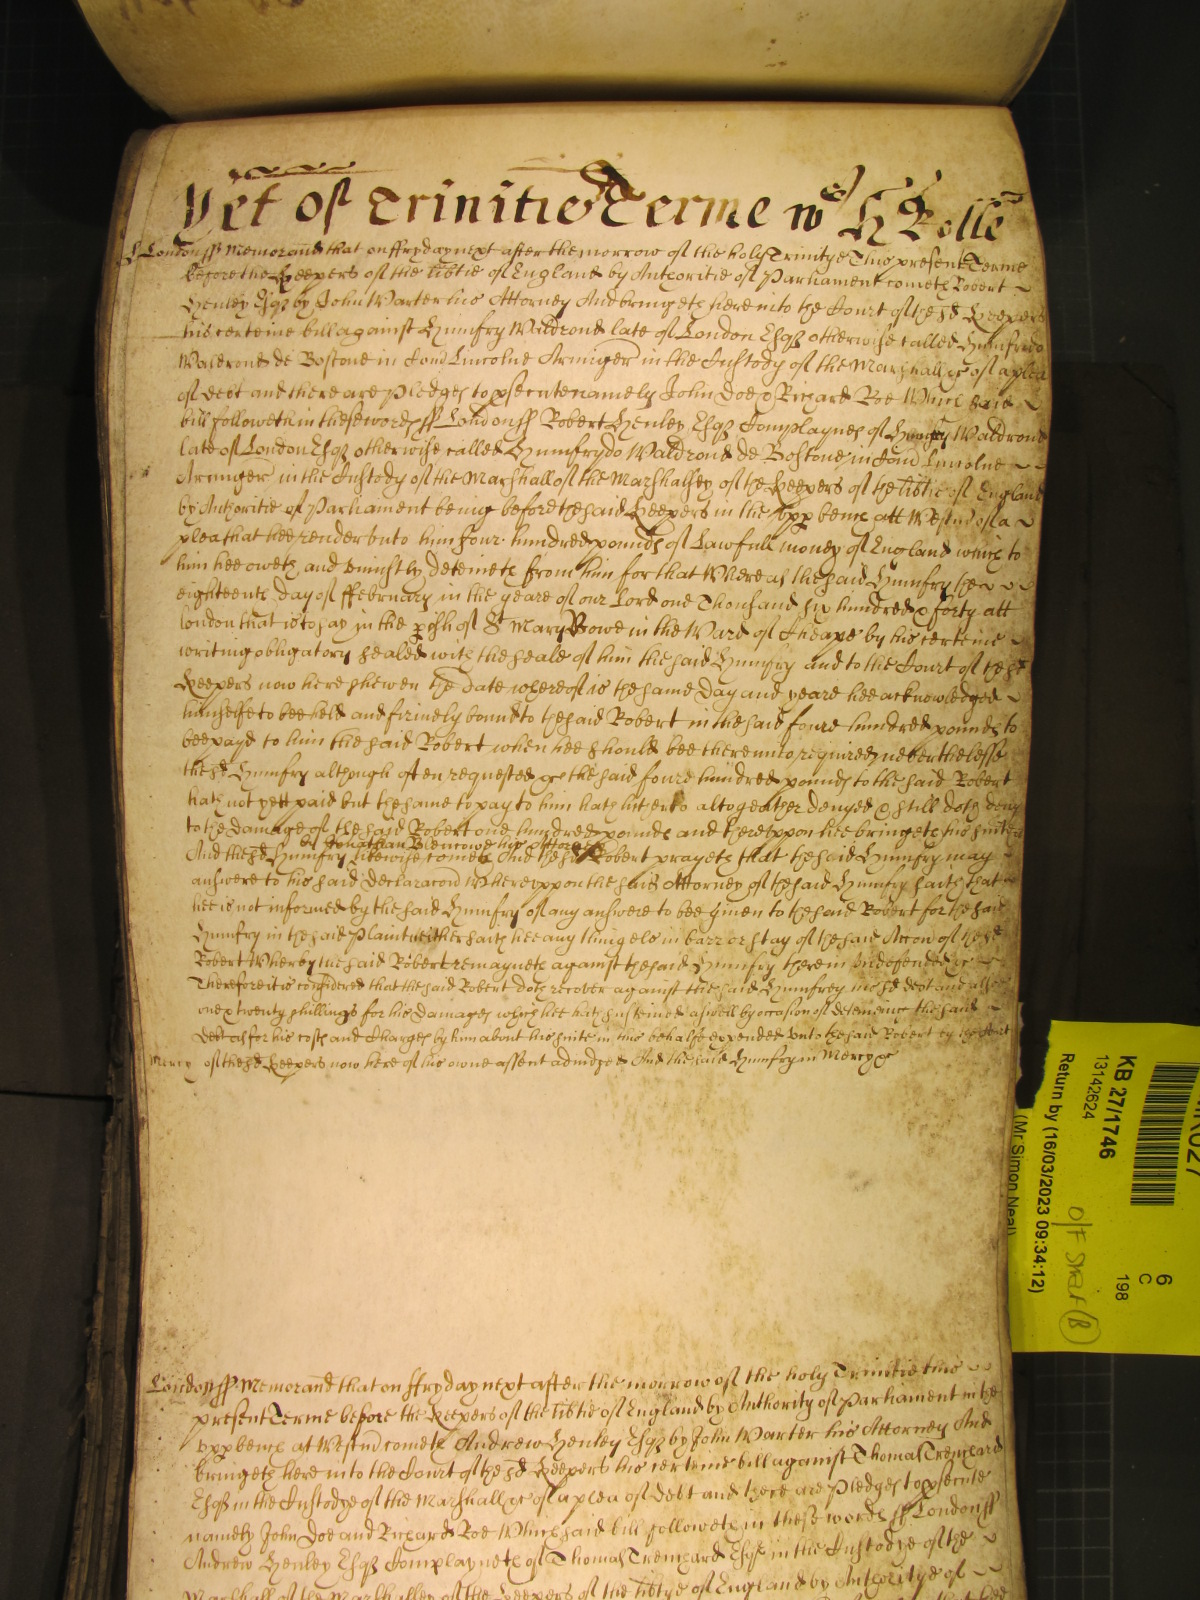 Yet of Trinitie Terme wth H Rolle
London ss Memorand that on ffryday next after the morrow of the holy Trinitye This present Terme
before the Keepers of the libtie of England by Authoritie of Parliament cometh Robert
Henley Esqz by John Warter his Attorney And bringeth here into the Court of the sd Keepers
his certeine bill against Humfry Waldrond late of London Esqz otherwise called Humfrido
Waldrond de Bostone in Com Lincolne Armiger in the Custody of the Marshall &c of a plea
of debt and there are Pledges to psecute namely John Doe & Richard Roe Which said
bill followeth in these words ss London ss Robert Henley Esqz Complaynes of Humfry Waldrond
late of London Esqz otherwise called Humfrydo Waldrond de Bostone in Com Lincolne
Armiger in the Custody of the Marshall of the Marshalsey of the Keepers of the libtie of England
by Authoritie of Parliament being before the said Keepers in the upp bench att Westmr of a
plea that hee render unto him four hundred pounds of Lawfull money of England which to
him hee oweth and uniustly deteineth from him for that Whereas the said Humfry the
eighteenth day of ffebruary in the yeare of our Lord one Thousand six hundred & forty att
london that is to say in the pish of St Mary Bowe in the Ward of Cheape by his certeine
writing obligatory sealed with the seale of him the said Humfry and to the Court of the sd
Keepers now here shewen the date whereof is the same day and yeare hee acknowledged
himselfe to bee held and firmely bound to the said Robert in the said foure hundred pounds to
bee payd to him the said Robert when hee should bee thereunto required nevertheless
the sd Humfry although often requested &c the said foure hundred pounds to the said Robert
hath not yett paid but the same to pay to him hath hitherto altogeather denyed & still doth deny
to the damage of the said Robert one hundred pounds and thereuppon hee bringeth his suite &c
by Jonathan Blencowe his Attorney
And the sd Humfry likewise cometh And the sd Robert prayeth that the said Humfry may
answere to his said declaracon Whereuppon the said Attorney of the said Humfry saith that
hee is not informed by the said Humfry of any answere to bee given to the said Robert for the said
Humfry in the said Plaint neither saith hee any thing els in barr or stay of the said Accon of the sd
Robert Wherby the said Robert remayneth against the said Humfry therein undefended &c
Therefore it is considered that the said Robert doth recover against the said Humfrey his sd debt and alsoe
one & twenty shillings for his damages which hee hath susteined aswell by occasion of deteineing the said
debt as for his costs and Charges by him about his suite in this behalfe expended unto the said Robert by the Court
Mercy of the sd Keepers now here of his owne assent adiudged And the said Humfry in Mercy &c
London ss Memorand that on ffryday next after the morrow of the holy Trinitie this
present Terme before the Keepers of the libtie of England by Authority of Parliament in the
upp bench at Westmr cometh Andrew Henley Esqz by John Warter his Attorney And
bringeth here into the Court of the sd Keepers his certeine bill against Thomas Trenchard
Esqz in the Custodye of the Marshall &c of a plea of debt and there are Pledges to psecute
namely John Doe and Richard Roe Which said bill followeth in these words ss London ss
Andrew Henley Esqz Complayneth of Thomas Trenchard Esqz in the Custodye of the
Marshall of the Marshalsey of the Keepers of the libtye of England by Authoritye of
KB 27/1746
13142624
Return by (16/03/2023 09:34:12)
(Mr Simon Neal)
6
C
198
O/F Shelf B